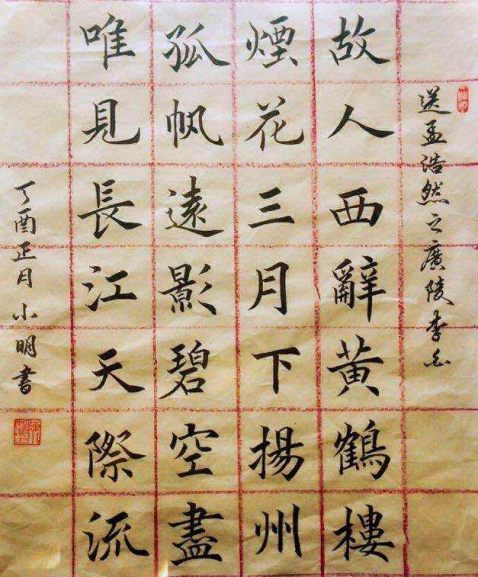 送孟浩然之廣陵李白
故人西辭黃鶴樓
煙花三月下揚州
孤帆遠影碧空盡
唯見長江天際流
丁酉正月小明書